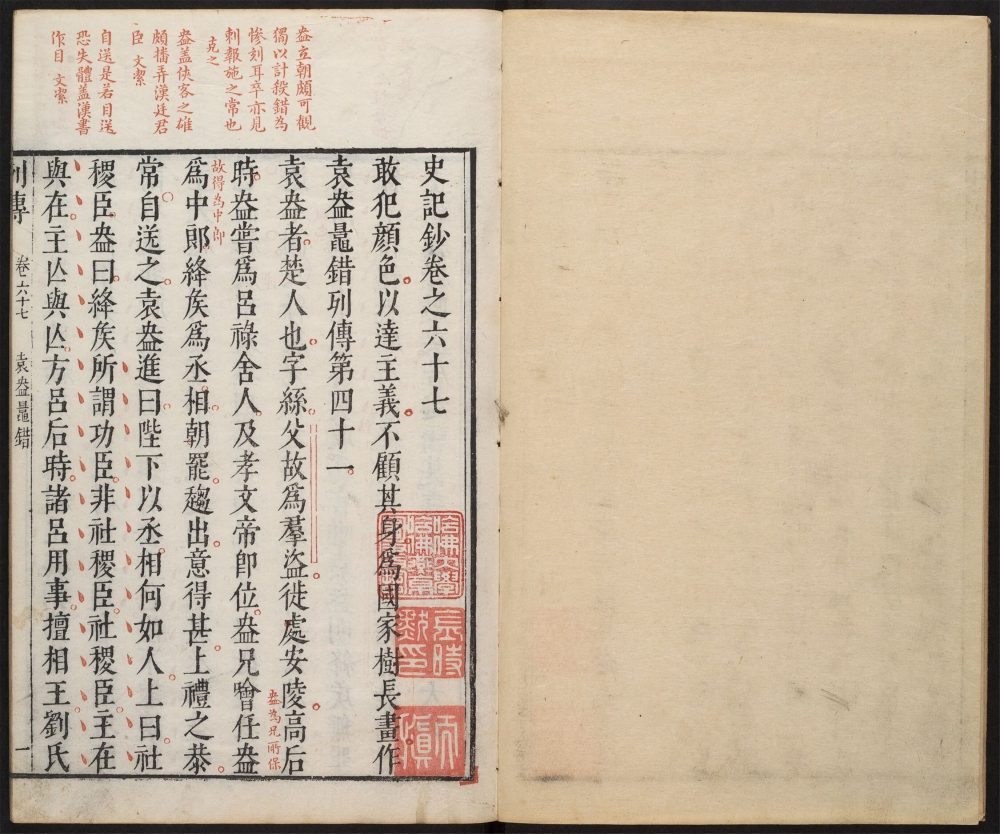 盎立朝頗可觀
獨以計殺錯爲
慘刻耳卒亦見
刺報施之常也
克之
盎蓋俠客之雄
頗播弄漢廷君
臣 文潔
自送是若目送
恐失體蓋漢書
作目 文潔
史記鈔卷之六十七
敢犯顔色以達主義不顧其身爲國家樹長畫作
袁盎鼂錯列傳第四十一
袁盎者楚人也字絲父故爲羣盜徙處安陵高后
盎爲兄所保
時盎嘗爲呂祿舍人及孝文帝卽位盎兄噲任盎
故得爲中郎
爲中郞絳矦爲丞相朝罷趨出意得甚上禮之恭
常自送之袁盎進曰陛下以丞相何如人上曰社
稷臣盎曰絳矦所謂功臣非社稷臣社稷臣主在
與在主亾與亾方呂后時諸呂用事擅相王劉氏
列傳 卷六十七 袁盎鼂錯 一